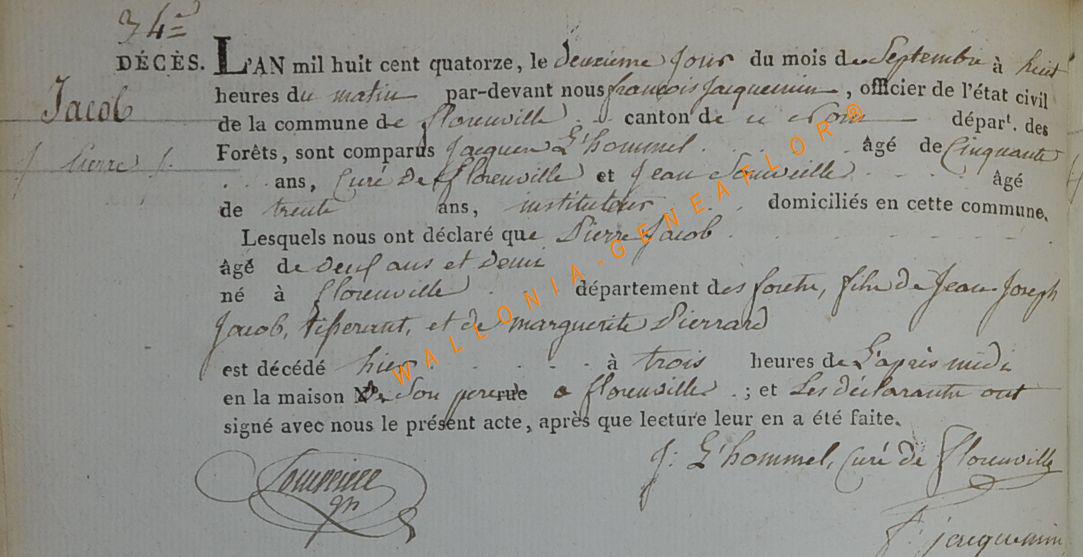 34e
DÉCÈS.
Jacob
Pierre
L'AN mil huit cent quatorze, le deuxième jour du mois de Septembre à huit
heures du matin par-devant nous françois Jacquemin, officier de l'état civil
de la commune de florenville canton de ce nom départ. des
Forêts, sont comparus Jacques L'hommel âgé de Cinquante
ans, Curé de florenville et Jean âgé
de trente ans, instituteur domiciliés en cette commune.
Lesquels nous ont déclaré que Pierre Jacob
âgé de deux ans et demi
né à florenville département des forêts, fils de Jean Joseph
Jacob, tisserant, et de marguerite Pierrard
est décédé hier à trois heures de L'après midi
en la maison de Son père a florenville ; et Les déclarants ont
signé avec nous le présent acte, après que lecture leur en a été faite.
J: L'hommel, Curé de florenville
f: jacquemin
WALLONIA-GENEAFLOR ®